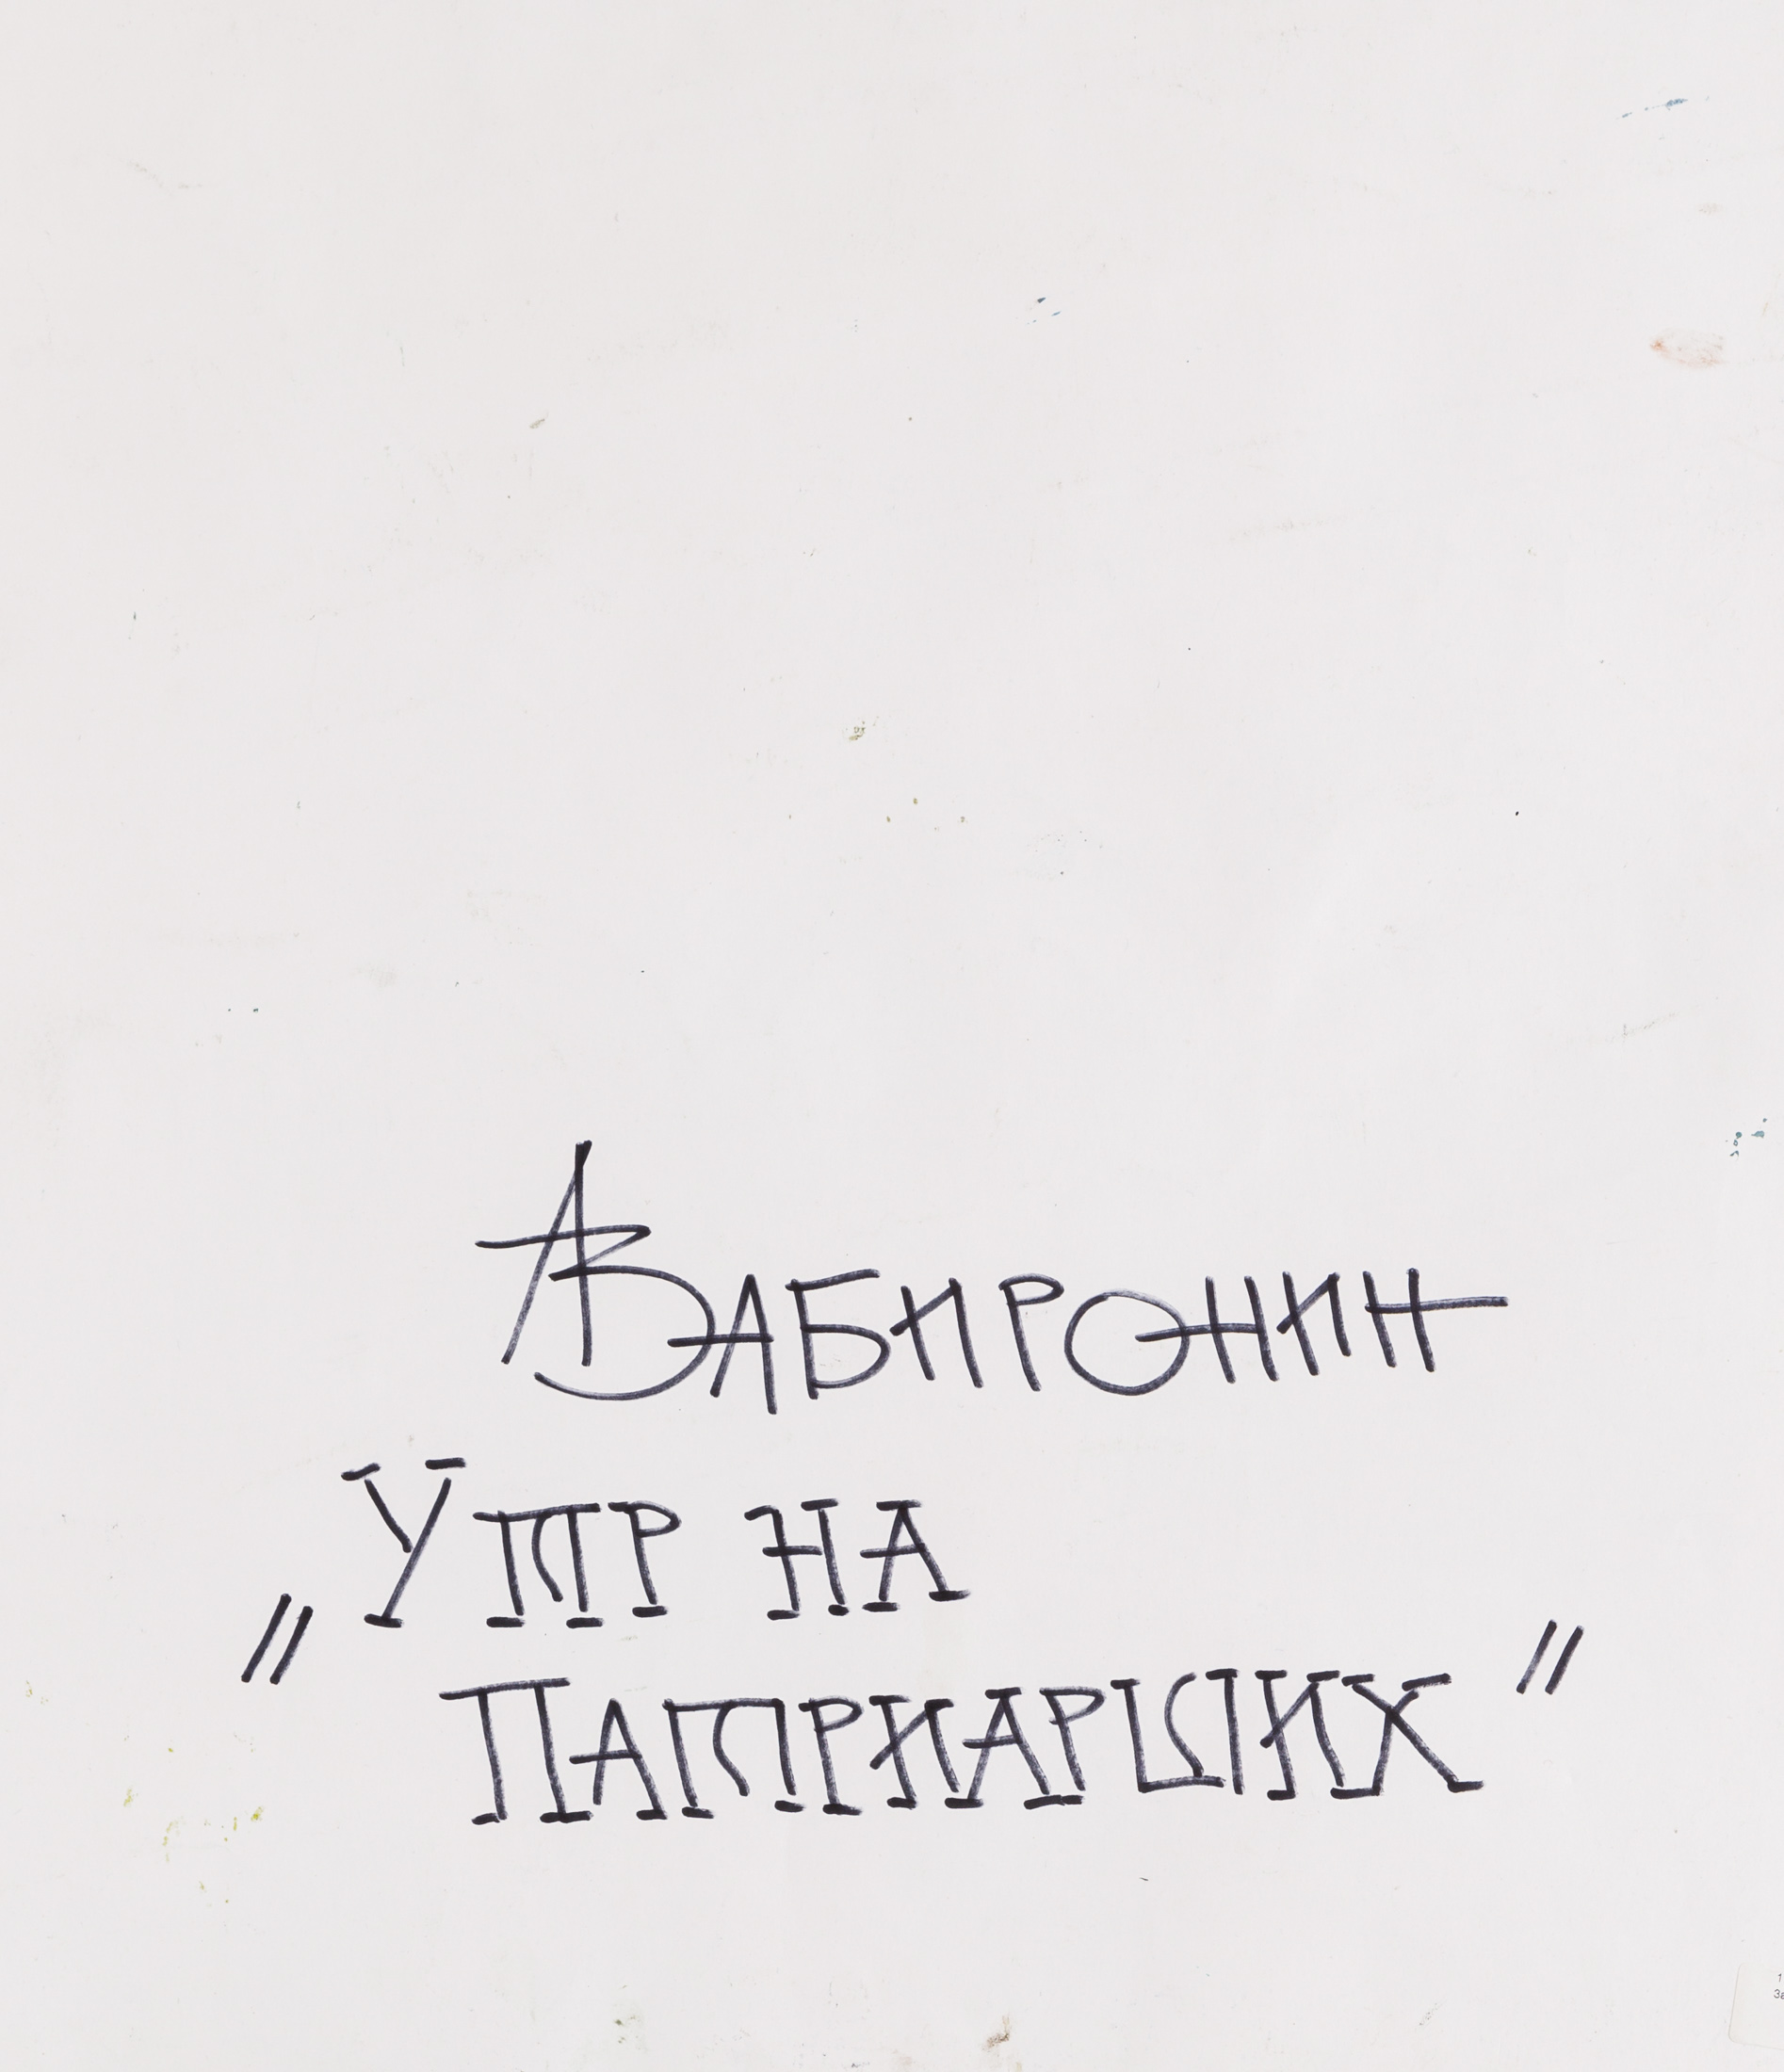 АЗАБИРОНИН
„УТР НА
ПАТРИАРШИХ"